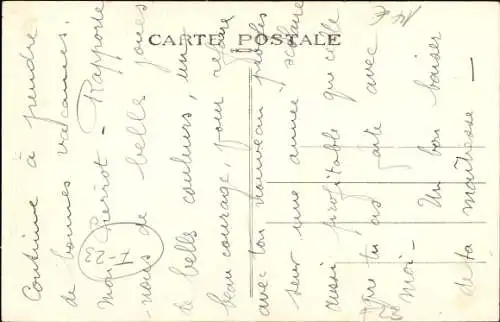 CARTE POSTALE
Continue à prendre
de bonnes vacances,
mon Pierrot - Rapporte
nous de belles joues
de belles couleurs, un
beau courage, pour refaire
avec ton nouveau
sur une année scolaire
aussi profitable que celle
que tu as faite avec
moi -
Un bon baiser
de ta maîtresse -